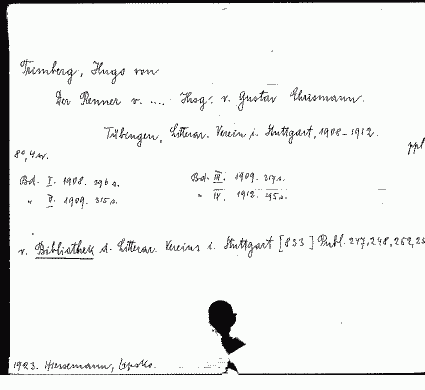 Trimberg, Hugo von
Der Renner v. .... Hrsg. v. Gustav Ehrismann.
Tübingen, Litterar. Verein i. Stuttgart, 1908-1912.
ppl
8º, 4 w.
Bd. I. 1908. 396 s. Bd. III. 1909. 317 s.
" II. 1909. 315 s. " IV. 1912.
v. Bibliothek d. Litterar. Vereins i. Stuttgart [833] Publ. 247, 248, 252, 25
1923. Hiersemann, Lpzg.